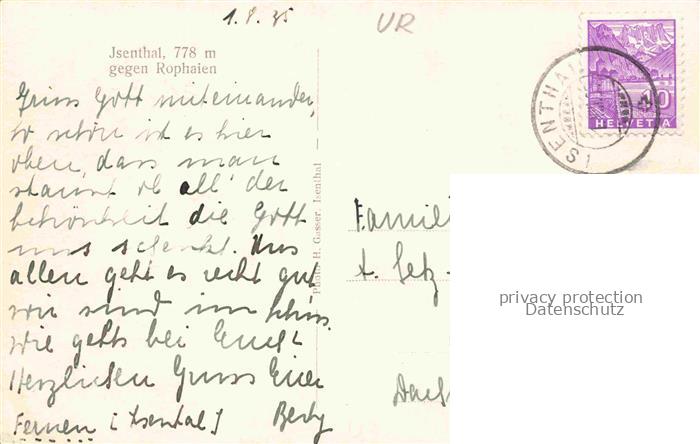 1.8.35
UR
Jsenthal, 778 m
gegen Rophaien
Grüss Gott miteinander,
so schön ist es hier
oben, dass man
staunt ob all' der
Schönheit die Gott
uns schenkt. Uns
allen geht es recht gut
wir sind im
Wie gehts bei Euch?
Herzlichen Gruss Euer
Fernen [Isental] Berty
Photo H. Gasser, Isenthal
ISENTHAL
HELVETIA
Famili
A. Setz-
privacy protection
Datenschutz